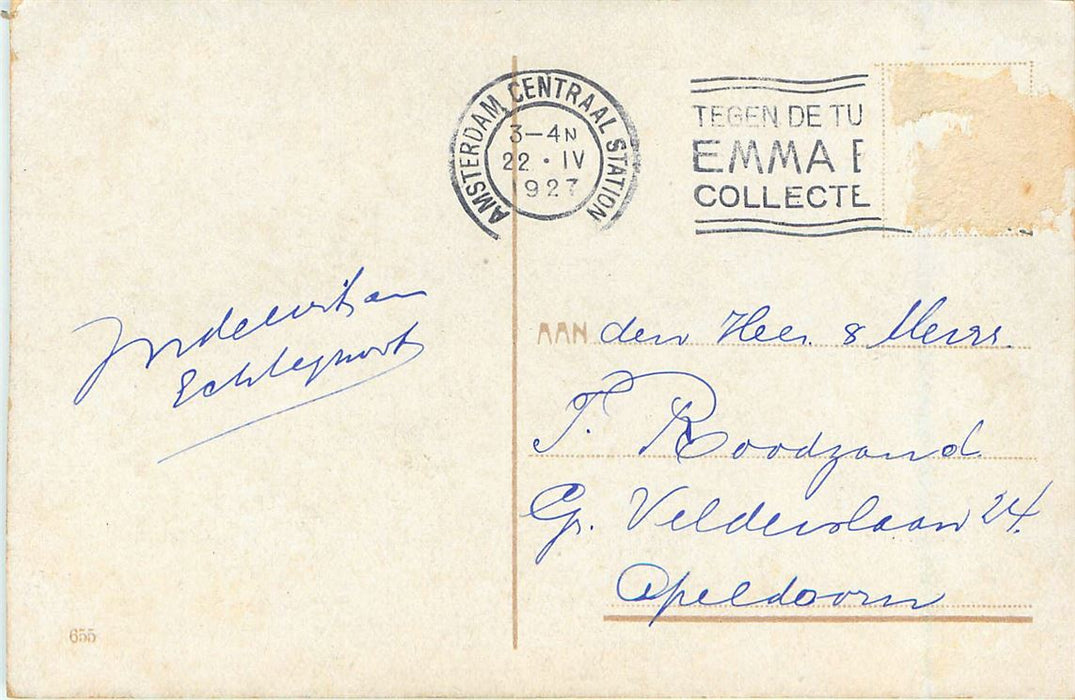 AMSTERDAM CENTRAAL STATION
3-4N
22 • IV
1927
TEGEN DE TU
EMMA B
COLLECTE
Echtgenoot
AAN den Heer & Mevr.
T. Roodzand
G. Velderslaan 24.
Apeldoorn
655